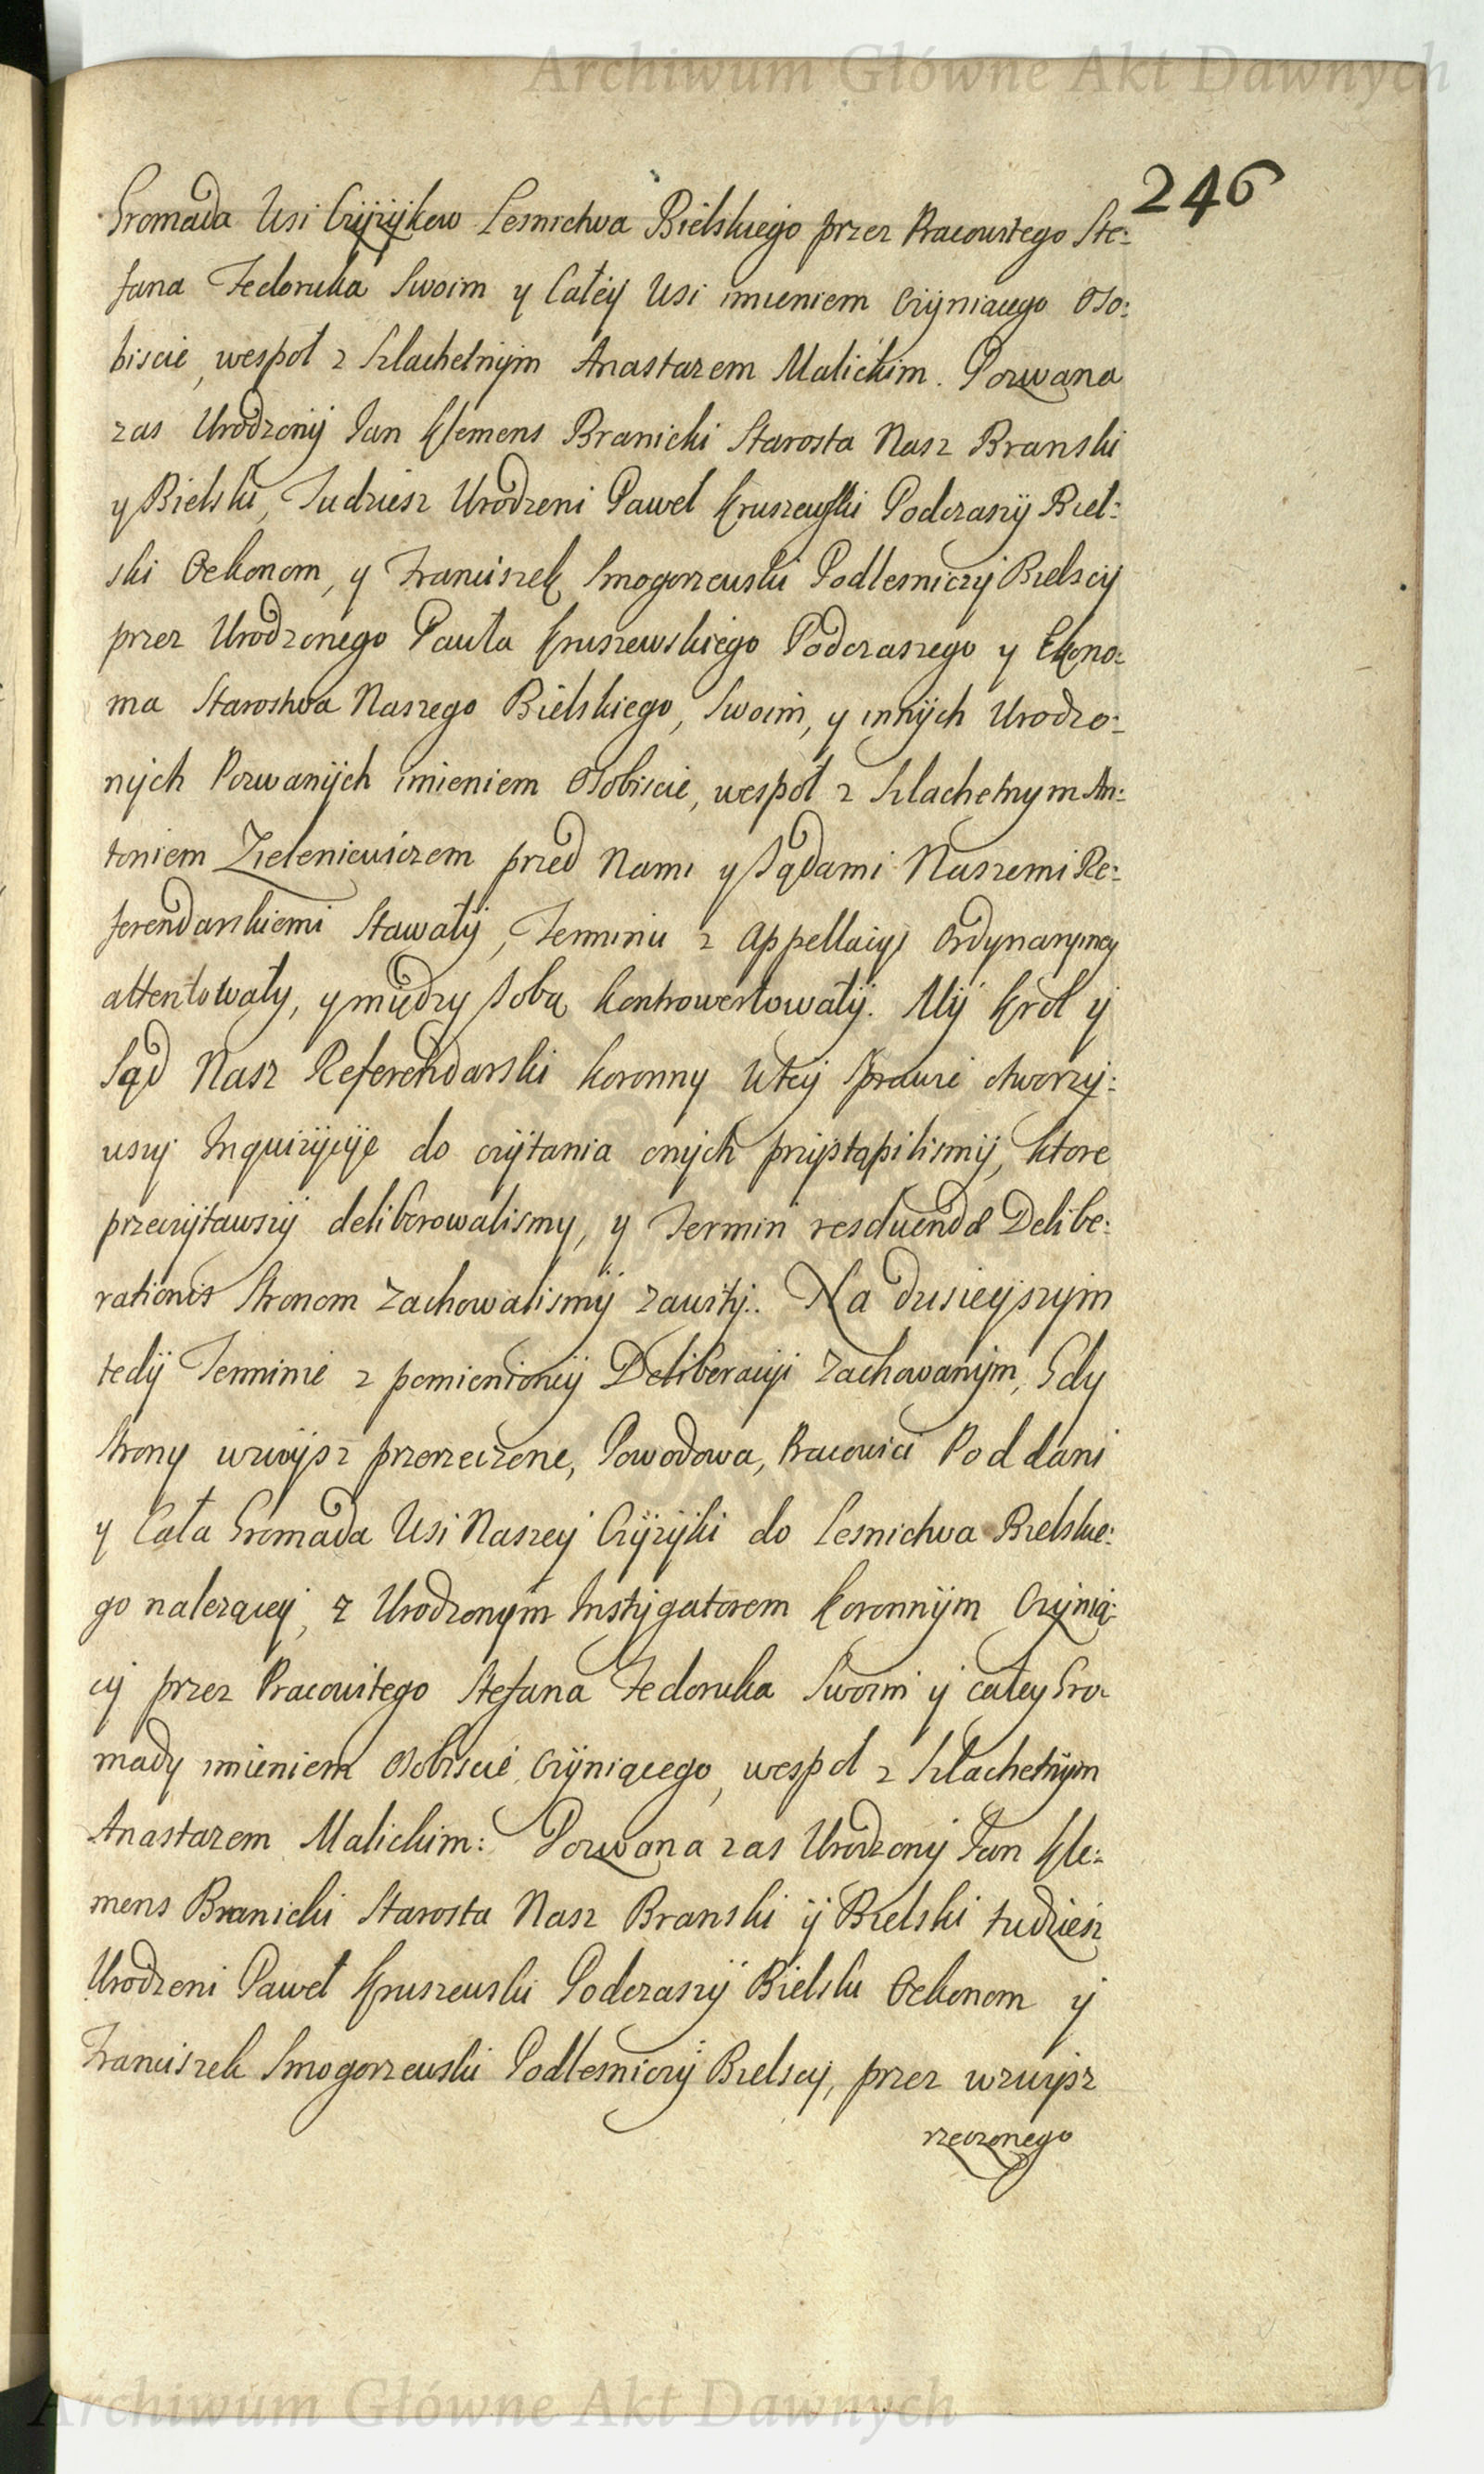 Archiwum Główne Akt Dawnych
246
Gromada Wsi Czyżykow Lesnictwa Bielskiego przez Pracowitego Ste:
fana Fedoruka Swoim y Całey Wsi imieniem Czyniącego Oso:
biscie, wespoł z Szlachetnym Anastazem Malickim. Pozwana
zas Urodzony Jan Klemens Branicki Starosta Nasz Branski
y Bielski, Tudziesz Urodzeni Paweł Kruszewski Podczaszy Biel:
ski Oekonom, y Franciszek Smogorzewski Podlesniczy Bielscy
przez Urodzonego Pawła Kruszewskiego Podczaszego y Ekono:
ma Starostwa Naszego Bielskiego, Swoim, y innych Urodzo:
nych Pozwanych imieniem Osobiscie, wespoł z Szlachetnym An:
toniem Zieleniewiczem przed Nami y Sądami Naszemi Re:
ferendarskiemi Stawały, Terminu z Appellacyi Ordynaryiney
attentowały, y między sobą kontrowertowały. My Krol y
Sąd Nasz Referendarski Koronny wtey Sprawie otworzy:
wszy Inquizycye do czytania onych przystąpilismy, ktore
przeczytawszy deliberowalismy, y Termin resolvendæ Delibe:
rationis Stronom zachowalismy zawity. Na dzisieyszym
tedy Terminie z pomienioney Deliberacyi zachowanym, Gdy
Strony wzwysz przerzeczone, Powodowa, Pracowici Poddani
y Cała Gromada Wsi Naszey Czyżyki do Lesnictwa Bielskie:
go nalezącey, z Urodzonym Instygatorem Koronnym Czynią:
cy przez Pracowitego Stefana Fedoruka Swoim y całey Gro:
mady imieniem Osobiscie Czyniącego, wespoł z Szlachetnym
Anastazem Malickim: Pozwana zas Urodzony Jan Kle:
mens Branicki Starosta Nasz Branski y Bielski tudziesz
Urodzeni Paweł Kruszewski Podczaszy Bielski Oekonom y
Franciszek Smogorzewski Podlesniczy Bielscy, przez wzwysz
rzeczonego
Archiwum Główne Akt Dawnych